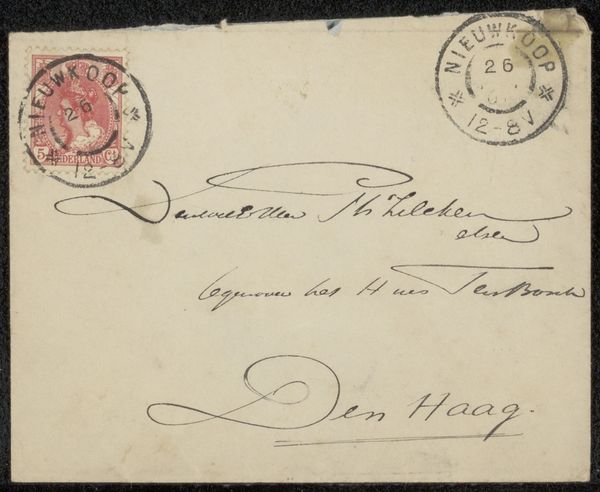 NIEUWKOOP
26
12-8V
NIEUWKOOP
26
12
5 Ct
NEDERLAND
Ph Zilcken
het Huis Ten Bosch
Den Haag.